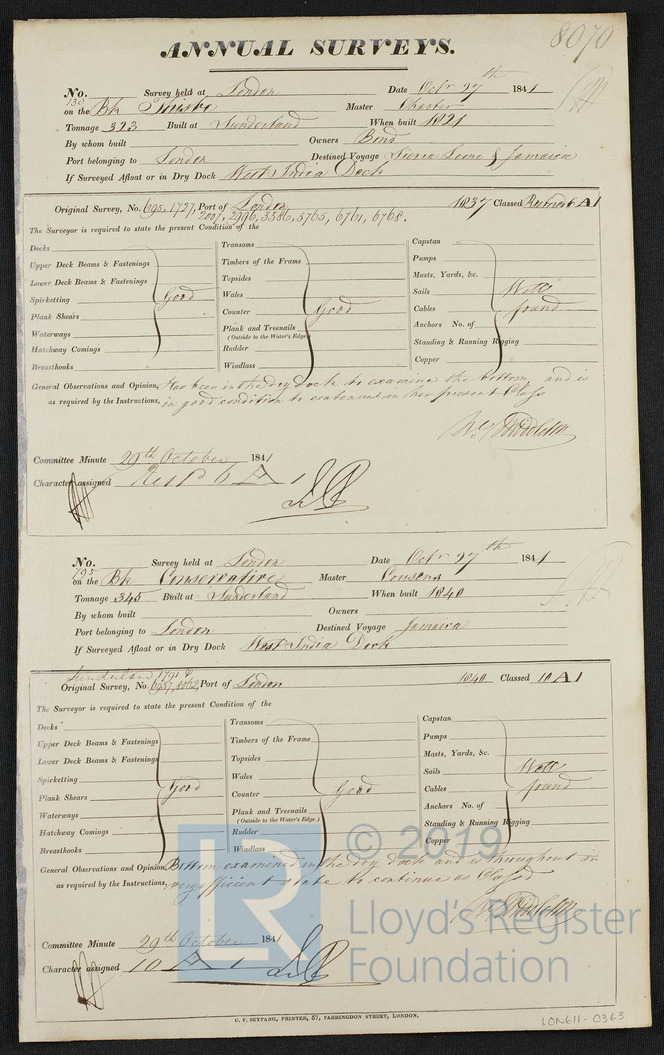 8070
ANNUAL SURVEYS.
No. 130 Survey held at London Date Octr 27th 1841
on the Bk Master Charter
Tonnage 323 Built at Sunderland When built 1821
By whom built Owners Bond
Port belonging to London Destined Voyage Sierra Leone & Jamaica
If Surveyed Afloat or in Dry Dock West India Dock
Original Survey, No. 695, 1727, Port of London 1837 Classed Restored 6 A 1
2007, 2996, 3386, 5765, 6761, 6768.
The Surveyor is required to state the present Condition of the
Decks Transoms Capstan
Upper Deck Beams & Fastenings Timbers of the Frame Pumps
Lower Deck Beams & Fastenings Topsides Masts, Yards, &c.
Spirketting Good Wales Sails Well
Plank Shears Counter Good Cables found
Waterways Plank and Treenails Anchors No. of
(Outside to the Water's Edge)
Hatchway Comings Rudder Standing & Running Rigging
Breasthooks Windlass Copper
General Observations and Opinion, Has been in the dry dock to examine the bottom, and is
as required by the Instructions, in good condition to continue in her present Class
Middleton
Committee Minute 29th October 1841
Character assigned Rest 6 A 1
No. 795 Survey held at London Date Octr 27th 1841
on the Bk Conservative Master Cousens
Tonnage 345 Built at Sunderland When built 1840
By whom built Owners
Port belonging to London Destined Voyage Jamaica
If Surveyed Afloat or in Dry Dock West India Dock
Sunderland 1791 &
Original Survey, No. 6957, 8012 Port of London 1840 Classed 10 A 1
The Surveyor is required to state the present Condition of the
Decks Transoms Capstan
Upper Deck Beams & Fastenings Timbers of the Frame Pumps
Lower Deck Beams & Fastenings Topsides Masts, Yards, &c.
Spirketting Wales Sails Well
Plank Shears Good Counter Good Cables found
Waterways Plank and Treenails Anchors No. of
(Outside to the Water's Edge.)
Hatchway Comings Rudder Standing & Running Rigging
Breasthooks Windlass Copper
General Observations and Opinion, Bottom examined in the dry dock and is throughout in
as required by the Instructions, very efficient state to continue as Classed
Middleton
Committee Minute 29th October 1841
Character assigned 10 A 1
C. F. SEYFANG, PRINTER, 57, FARRINGDON STREET, LONDON.
LON611-0363
LR
© 2019
Lloyd's Register
Foundation